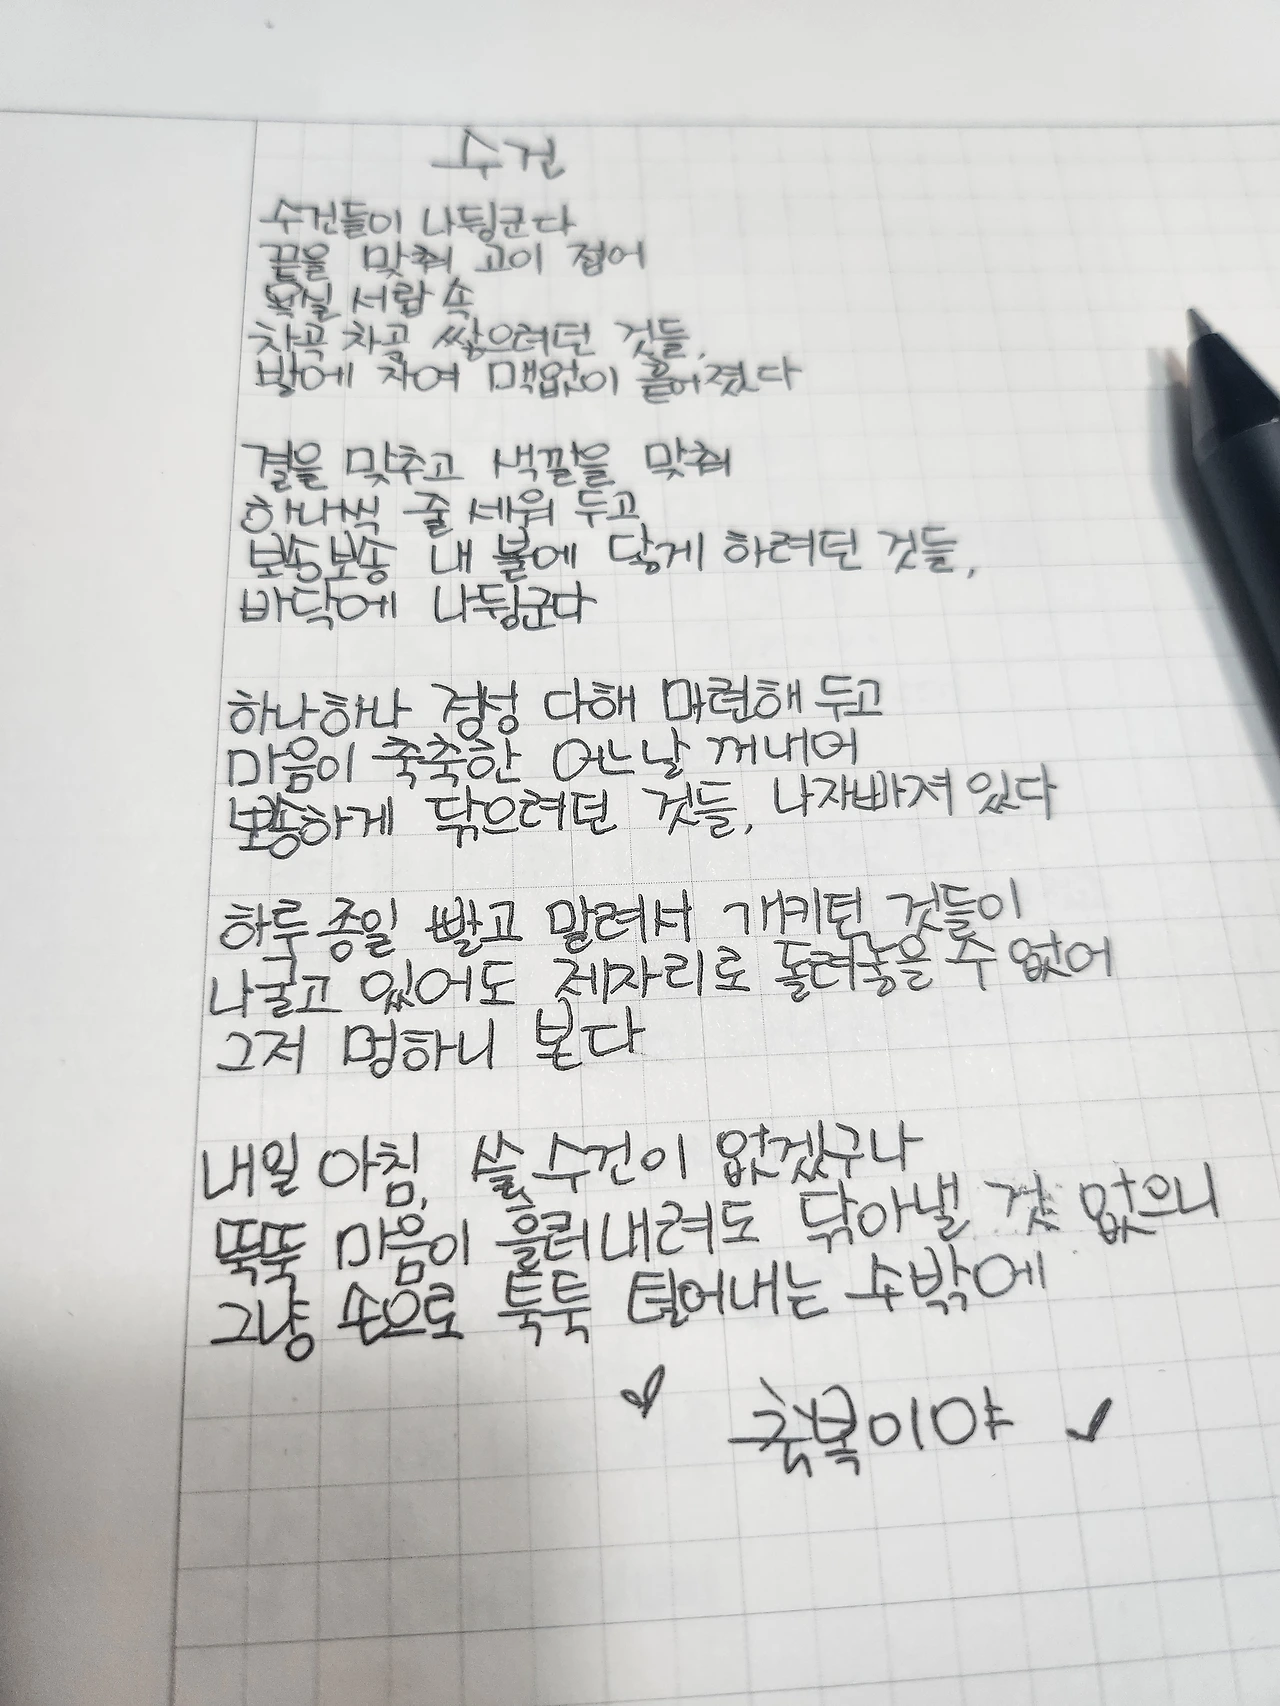 수건
수건들이 나뒹군다
끝을 맞춰 고이 접어
욕실 서랍 속
차곡 차곡 쌓으려던 것들,
발에 차여 맥없이 흩어졌다
결을 맞추고 색깔을 맞춰
하나씩 줄 세워 두고
보송보송 내 볼에 닿게 하려던 것들,
바닥에 나뒹군다
하나하나 정성 다해 마련해 두고
마음이 축축한 어느날 꺼내어
뽀송하게 닦으려던 것들, 나자빠져 있다
하루 종일 빨고 말려서 개키던 것들이
나굴고 있어도 제자리로 돌려놓을 수 없어
그저 멍하니 본다
내일 아침, 쓸 수건이 없겠구나
뚝뚝 마음이 흘러내려도 닦아낼 것 없으니
그냥 손으로 툭툭 털어내는 수밖에
축복이야